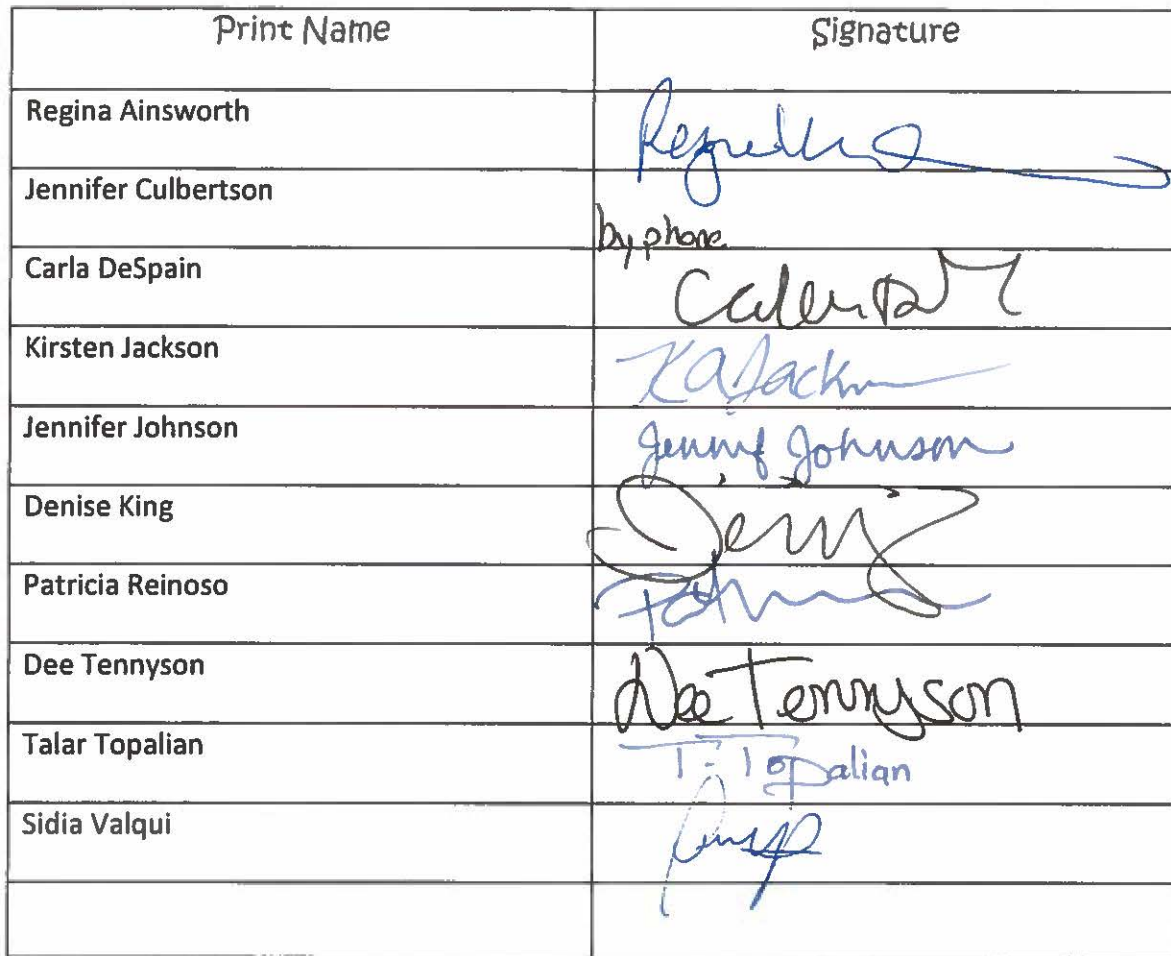 Print Name Signature
Regina Ainsworth
Jennifer Culbertson
by phone
Carla DeSpain
Kirsten Jackson
KAJackson
Jennifer Johnson
Jennif Johnson
Denise King
Patricia Reinoso
Dee Tennyson
Dee Tennyson
Talar Topalian
T. Topalian
Sidia Valqui